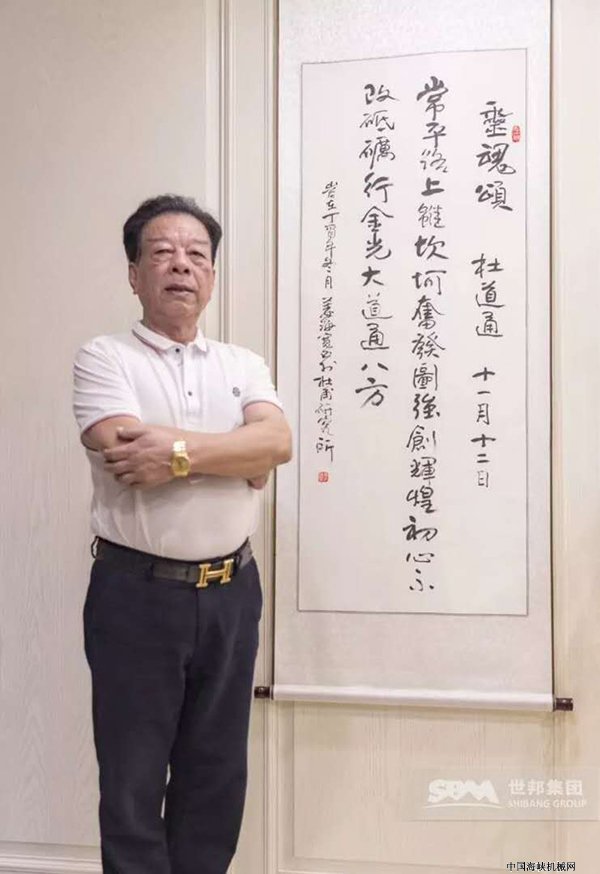 靈魂頌 杜道通 十一月十二日
常平路上雖坎坷奮發圖強創輝煌初心不
改砥礪行金光大道通八方
岁在丁酉年冬月 海 杜甫研究所
SBM 世邦集团
SHIBANG GROUP
中国海峡机械网